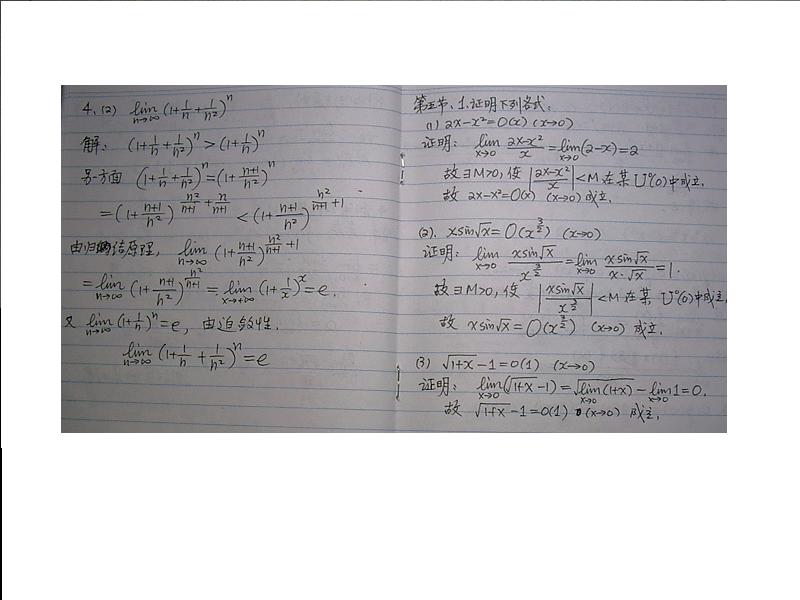 4、(2) lim n→∞ (1+1/n+1/n²)^n
解: (1+1/n+1/n²)^n > (1+1/n)^n
另一方面 (1+1/n+1/n²)^n = (1+(n+1)/n²)^n
= (1+(n+1)/n²)^(n²/(n+1)+n/(n+1)) < (1+(n+1)/n²)^(n²/(n+1)+1)
由归结原理, lim n→∞ (1+(n+1)/n²)^(n²/(n+1)+1)
= lim n→∞ (1+(n+1)/n²)^(n²/(n+1)) = lim x→+∞ (1+1/x)^x = e.
又 lim n→∞ (1+1/n)^n = e, 由迫敛性.
lim n→∞ (1+1/n+1/n²)^n = e
第五节、1.证明下列各式:
(1) 2x-x²=O(x) (x→0)
证明: lim x→0 (2x-x²)/x = lim x→0 (2-x) = 2
故∃M>0,使 |(2x-x²)/x| < M 在某 U°(0) 中成立.
故 2x-x²=O(x) (x→0) 成立.
(2). x sin√x = O(x^(3/2)) (x→0)
证明: lim x→0 (x sin√x)/x^(3/2) = lim x→0 (x sin√x)/(x·√x) = 1.
故∃M>0,使 |(x sin√x)/x^(3/2)| < M 在某 U°(0) 中成立.
故 x sin√x = O(x^(3/2)) (x→0) 成立.
(3) √(1+x) -1=o(1) (x→0)
证明: lim x→0 (√(1+x) -1) = √(lim x→0 (1+x)) - lim x→0 1 = 0.
故 √(1+x) -1=o(1) (x→0) 成立.